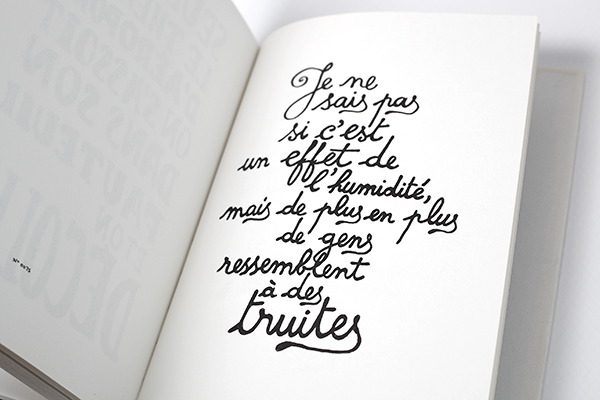 Je ne
sais pas
si c'est
un effet de
l'humidité,
mais de plus en plus
de gens
ressemblent
à des
truites